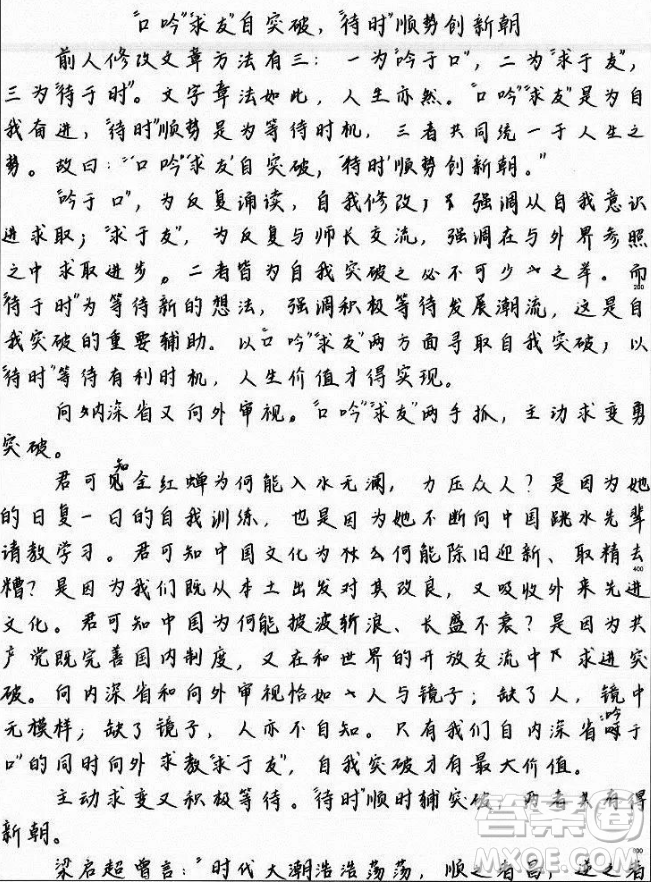 “口吟”“求友”自突破，“待时”顺势创新朝
前人修改文章方法有三：一为“吟于口”，二为“求于友”，
三为“待于时”。文字章法如此，人生亦然。“口吟”“求友”是为自
我奋进，“待时”顺势是为等待时机，三者共同统一于人生之
势。故曰：“‘口吟’‘求友’自突破，‘待时’顺势创新朝。”
“吟于口”，为反复诵读，自我修改，强调从自我意识
进求取；“求于友”，为反复与师长交流，强调在与外界参照
之中求取进步。二者皆为自我突破之必不可少之举。而
“待于时”为等待新的想法，强调积极等待发展潮流，这是自
我突破的重要辅助。以“口吟”“求友”两方面寻取自我突破，以
“待时”等待有利时机，人生价值才得实现。
向内深省又向外审视。“口吟”“求友”两手抓，主动求变勇
突破。
君可知全红蝉为何能入水无澜，力压众人？是因为她
的日复一日的自我训练，也是因为她不断向中国跳水先辈
请教学习。君可知中国文化为何能除旧迎新、取精去
糟？是因为我们既从本土出发对其改良，又吸收外来先进
文化。君可知中国为何能披波斩浪、长盛不衰？是因为共
产党既完善国内制度，又在和世界的开放交流中求进突
破。向内深省和向外审视恰如人与镜子；缺了人，镜中
无模样；缺了镜子，人亦不自知。只有我们自内深省“吟于
口”的同时向外求教“求于友”，自我突破才有最大价值。
主动求变又积极等待。“待时”顺时辅突破，两者共有得
新朝。
梁启超曾言：“时代大潮浩浩荡荡，顺之者昌，逆之者
200
400
600
答案圈